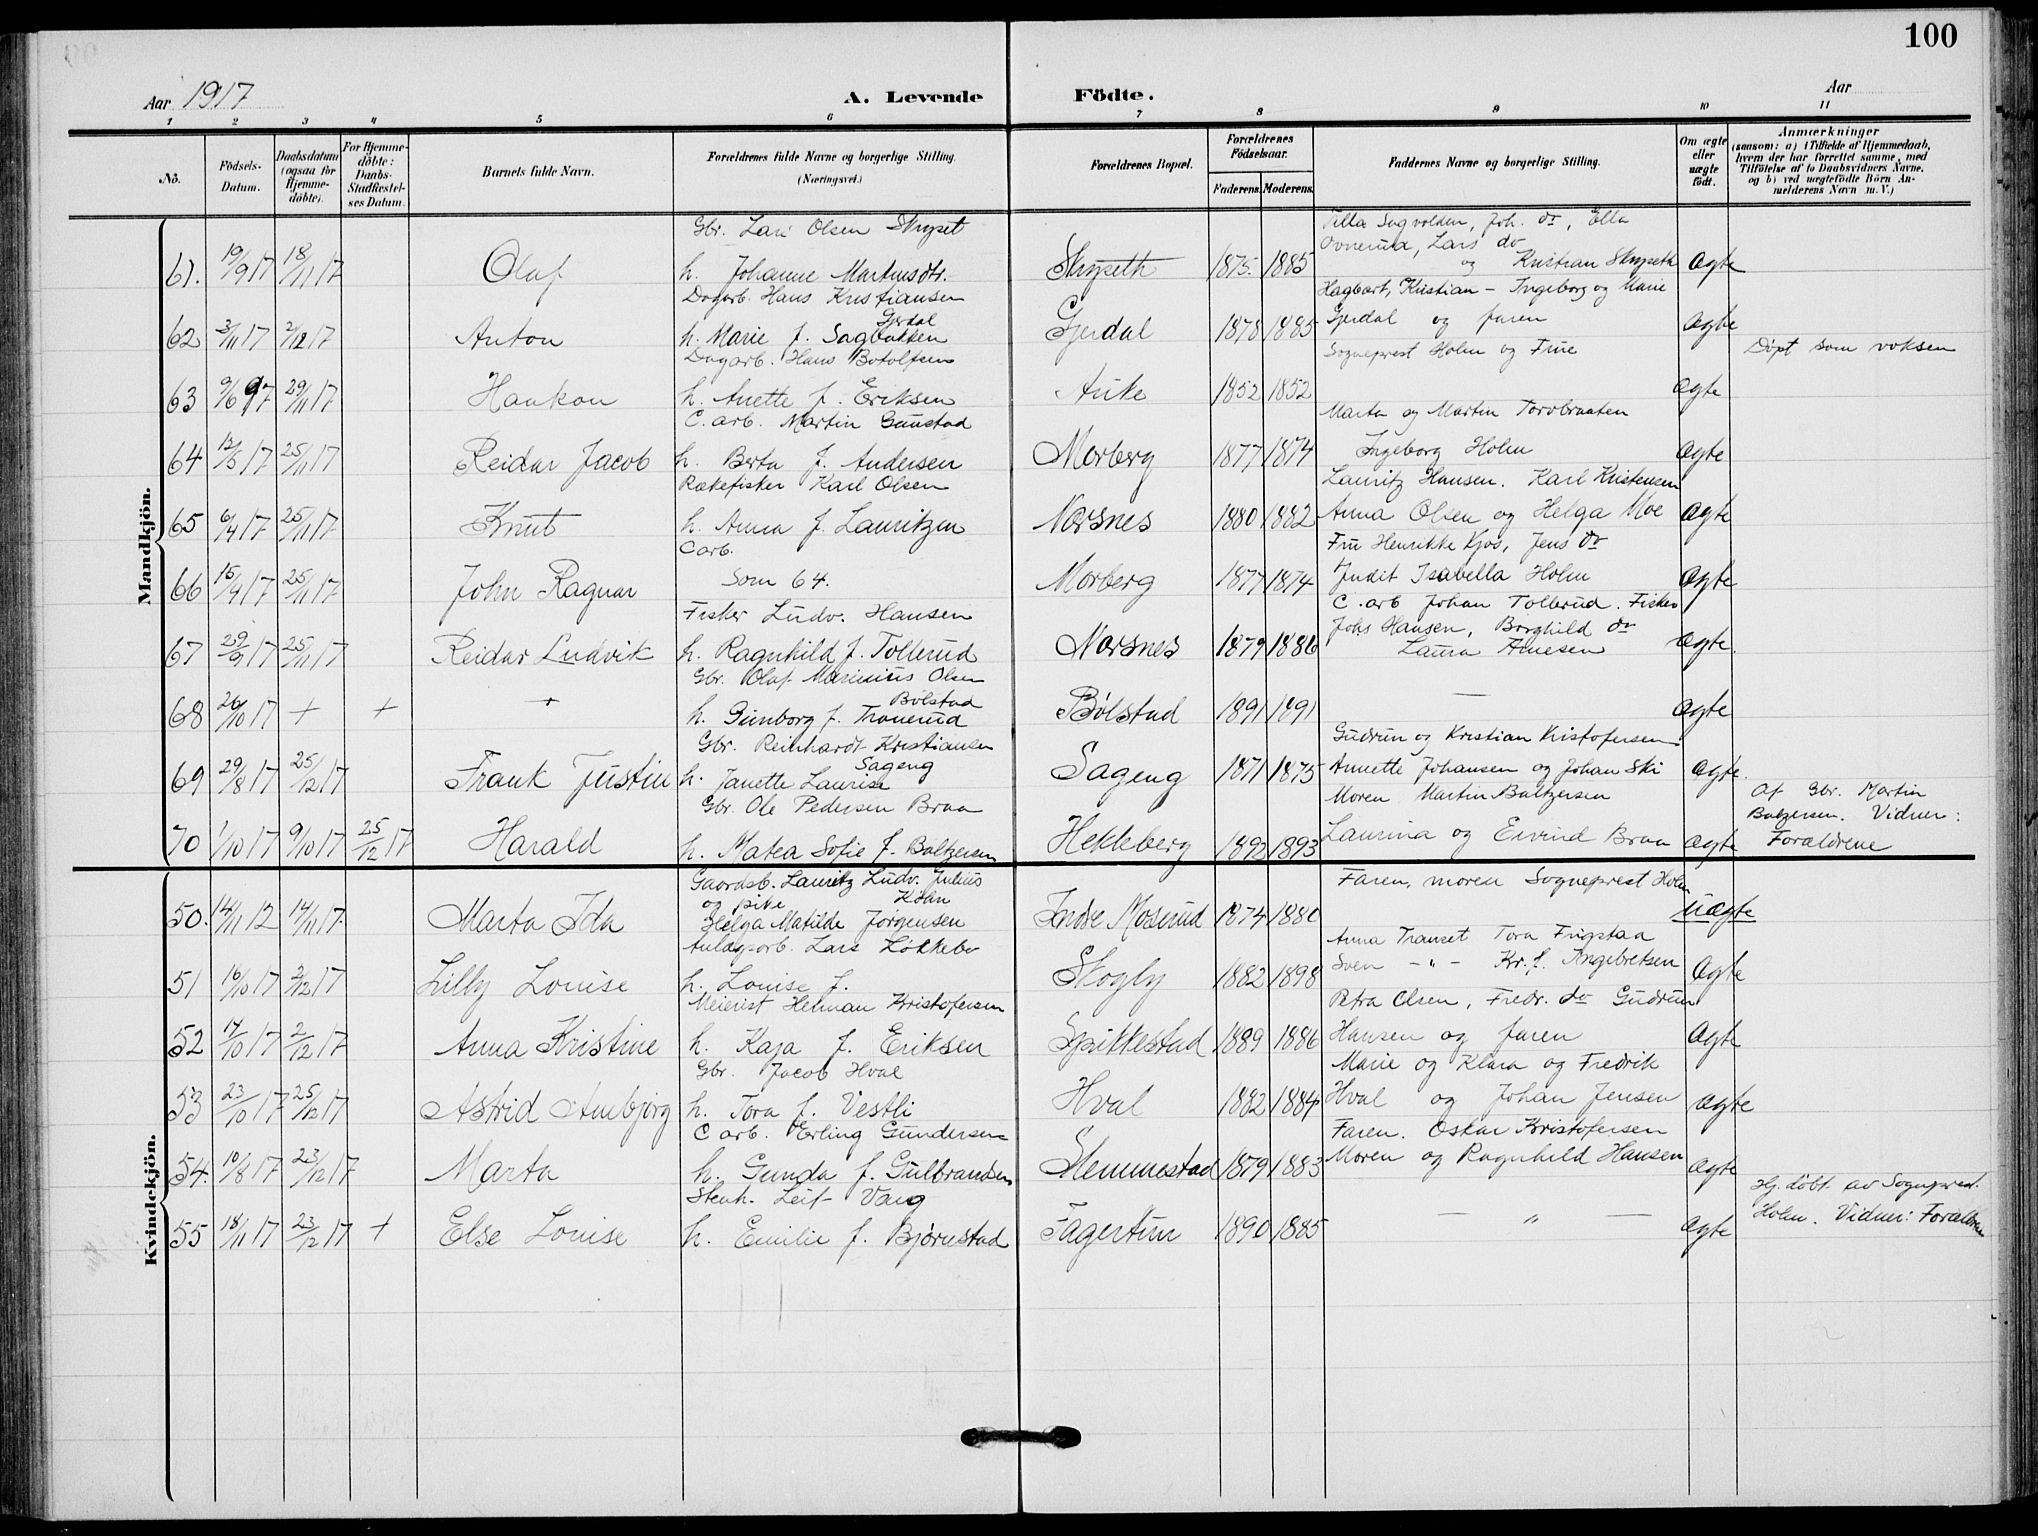 100
Aar 1917 A. Levende Födte. Aar
1 2 3 4 5 6 7 8 9 10 11
No. Födsels-Datum. Daabsdatum (ogsaa for Hjemme-döbte). For Hjemme-döbte: Daabs-Stadfæstel-ses Datum. Barnets fulde Navn. Forældrenes fulde Navne og borgerlige Stilling. (Næringsvei.) Forældrenes Bopæl. Forældrenes Födselsaar. Faderens. Moderens. Faddernes Navne og borgerlige Stilling. Om ægte eller uægte födt. Anmærkninger (saasom: a) i Tilfælde af Hjemmedaab, hvem der har forrettet samme, med Tilföielse af to Daabsvidners Navne, og b) ved uægtefödte Börn An-melderens Navn m. V.)
Mandkjön.
Gbr. Lars Olsen Skryset Tilla Sagvolden, Joh. do, Ella
Ovnerud, Lars do
61. 19/9 17 18/11 17 Olaf h. Johanne Martinsdtr. Skryseth 1875. 1885 og Kristian Skryseth ægte
Dagarb. Hans Kristiansen Hagbart, Kristian - Ingeborg og Marie
Gjerdal
62 3/11 17 2/12 17 Anton h. Marie f. Sagbakken Gjerdal 1878 1885 Gjerdal og faren ægte
Dagarb. Hans Botolfsen Sogneprest Holm og Frue Döpt som voksen
63 9/6 97 29/11 17 Haakon h. Anette f. Eriksen Auke 1852 1852 ægte
C. arb. Martin Gunstad Marta og Martin Torvbraaten
64 12/3 17 25/11 17 Reidar Jacob h. Berta f. Andersen Morberg 1877 1874 Ingeborg Holm ægte
Rækefisker Karl Olsen Lauritz Hansen. Karl Kristensen
65 6/4 17 25/11 17 Knut h. Anna f. Lauritzen Nærsnes 1880 1882 Anna Olsen og Helga Moe ægte
C arb. Fru Henrikke Kjos, Jens do
66 15/9 17 25/11 17 John Ragnar Som 64. Morberg 1877 1874 Judit Isabella Holm ægte
Fisker Ludv. Hansen C. arb Johan Tollerud. Fisker
Johs Hansen, Borghild do
67 29/9 17 25/11 17 Reidar Ludvik h. Ragnhild f. Tollerud Nærsnes 1879 1886 Laura Arnesen ægte.
Gbr. Olaf Marinius Olsen
Bølstad
68 26/10 17 + + + h. Gunborg f. Tranerud Bølstad 1891 1891 — ægte
Gbr. Reinhardt Kristiansen Gudrun og Kristian Kristofersen
Sageng
69 29/8 17 25/12 17 Frank Justin h. Janette Laurise Sageng 1871 1875 Annette Johansen og Johan Ski ægte.
Gbr. Ole Pedersen Braa Moren Martin Baltzersen Af Gbr. Martin
Baltzersen. Vidner:
70 1/10 17 9/10 17 25/12 17 Harald h. Matea Sofie f. Baltzersen Hekleberg 1892 1893 Laurina og Eivind Braa ægte Forældrene
Kvindekjön.
Gaardsb. Lauritz Ludv. Julius Faren, moren Sogneprest Holm
og pike
50. 14/11 12 14/11 17. Marta Ida Helga Matilde Jørgensen Indre Moserud 1874 1880 uægte
Anlægsarb. Lars Løkkebø Anna Transet Tora Frigstaa
51 16/10 17 2/12 17 Lilly Louise h. Louise f. Skogby 1882 1898 Sven - " - Kr. f. Ingebretsen ægte
Meierist Herman Kristofersen Petra Olsen, Fredr. do Gudrun
52 14/10 17 2/12 17 Anna Kristine h. Kaja f. Eriksen Spikkestad 1889 1886 Hansen og faren ægte
Gbr. Jacob Hval Marie og Klara og Fredrik
53 23/10 17 25/12 17 Astrid Annbjørg h. Tora f. Vestli Hval 1882 1884 Hval og Johan Jensen ægte
C arb. Erling Gundersen Faren. Oskar Kristofersen
54. 10/8 17 23/12 17 Marta h. Gunda f. Gulbrandsen Slemmestad 1879 1883 Moren og Ragnhild Hansen ægte
Stenh. Leif Varg Hj. döbt av Sogneprest.
55 18/11 17 23/12 17 + Else Louise h. Emilie f. Bjørnstad Fagertun 1890 1885 — " — ægte Holm. Vidner: Forældrene